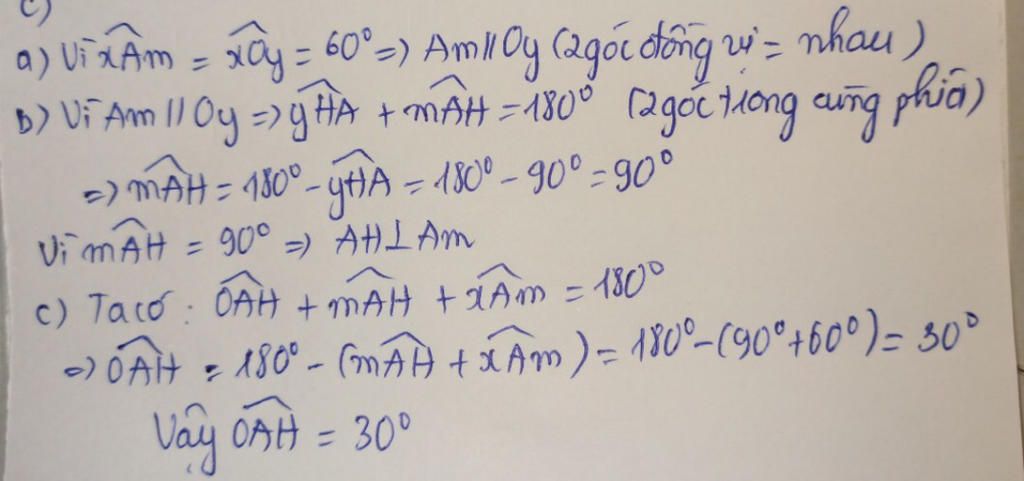 c)
a) Vì xÂm = xÔy = 60° => Am // Oy (2 góc đồng vị = nhau)
b) Vì Am // Oy => yĤA + mÂH = 180° (2 góc trong cùng phía)
=> mÂH = 180° - yĤA = 180° - 90° = 90°
Vì mÂH = 90° => AH⊥Am
c) Ta có: OÂH + mÂH + xÂm = 180°
=> OÂH = 180° - (mÂH + xÂm) = 180° - (90° + 60°) = 30°
Vậy OÂH = 30°